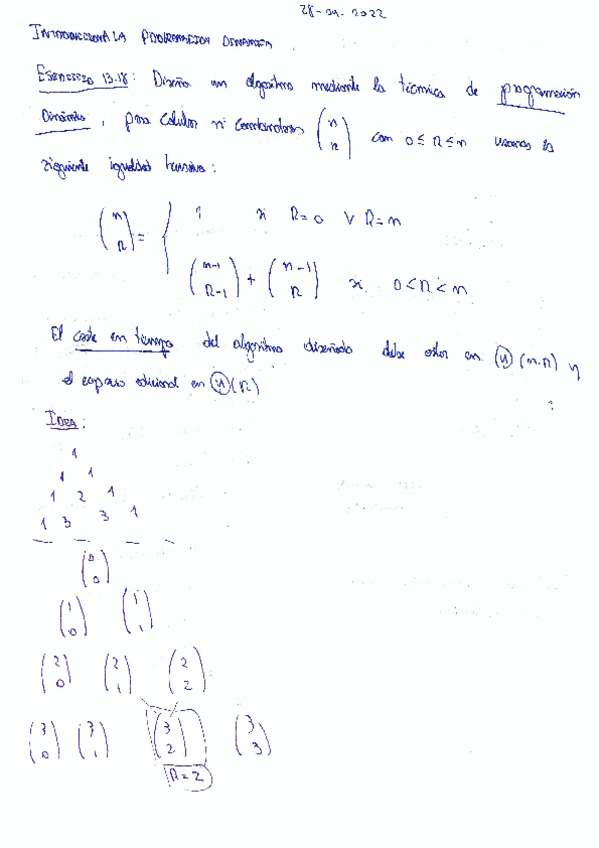 28-09-2022
INTRODUCCION A LA PROGRAMACION DINAMICA
EJERCICIO 13.18: Diseña un algoritmo mediante la técnica de programación
Dinámica, para calcular nº combinatorios (n R) con 0 ≤ R ≤ n usando la
siguiente igualdad recursiva:
(n R) = { 1 si R=0 ∨ R=n
(n-1 R-1) + (n-1 R) si 0<R<n
El coste en tiempo del algoritmo diseñado debe estar en Θ(n·R) y
el espacio adicional en Θ(R)
IDEA:
1
1 1
1 2 1
1 3 3 1
(0 0)
(1 0) (1 1)
(2 0) (2 1) (2 2)
(3 0) (3 1) (3 2) (3 3)
R=2